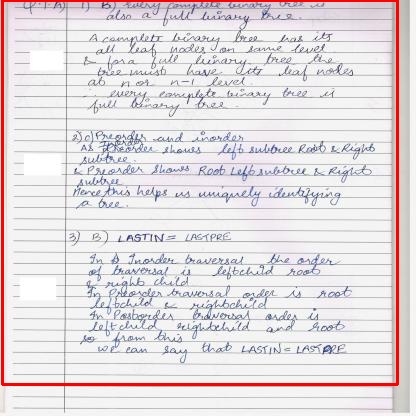 (P.T.A) 1) B) every complete binary tree is
also a full binary tree.
A complete binary tree has its
all leaf nodes on same level
& for a full binary tree the
tree must have its leaf nodes
at n or n-1 level.
∴ every complete binary tree is
full binary tree.
2) c) Preorder and inorder
As Inorder shows left subtree Root & Right
subtree.
& Preorder shows Root Left subtree & Right
subtree
Hence this helps us uniquely identifying
a tree.
3) B) LASTIN = LASTPRE
In Inorder traversal the order
of traversal is leftchild root
& right child
In Preorder traversal order is root
leftchild & rightchild
In Postorder traversal order is
leftchild rightchild and root
so from this
we can say that LASTIN = LASTPRE